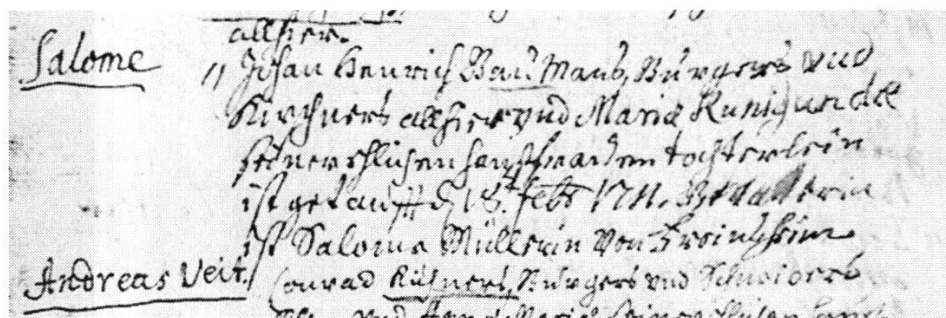 allhier.
Salome
Johan Henrich Bau Mans, Burgers vnd
Kirchners allhier vnd Maria Kunigundæ
seiner ehlichen haussfrauen tochterlein
ist getaufft d 18 febr 1711. Gevatterin
ist Salome Müllerin von Freinsheim
Andreas Veit.
Conrad Kühners, Burgers vnd Schneiders
vnd seiner